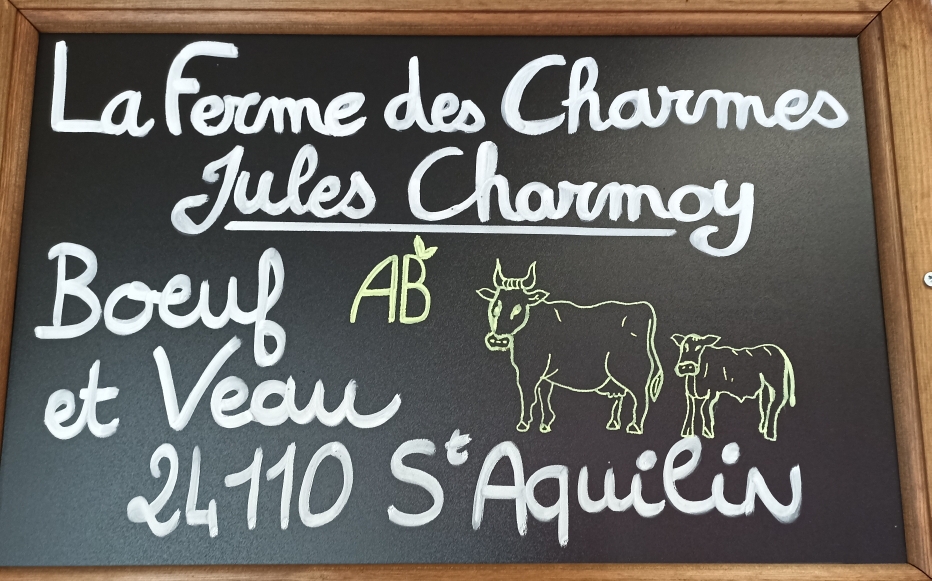 La Ferme des Charmes
Jules Charmoy
Boeuf
AB
et Veau
24110 St Aquilin